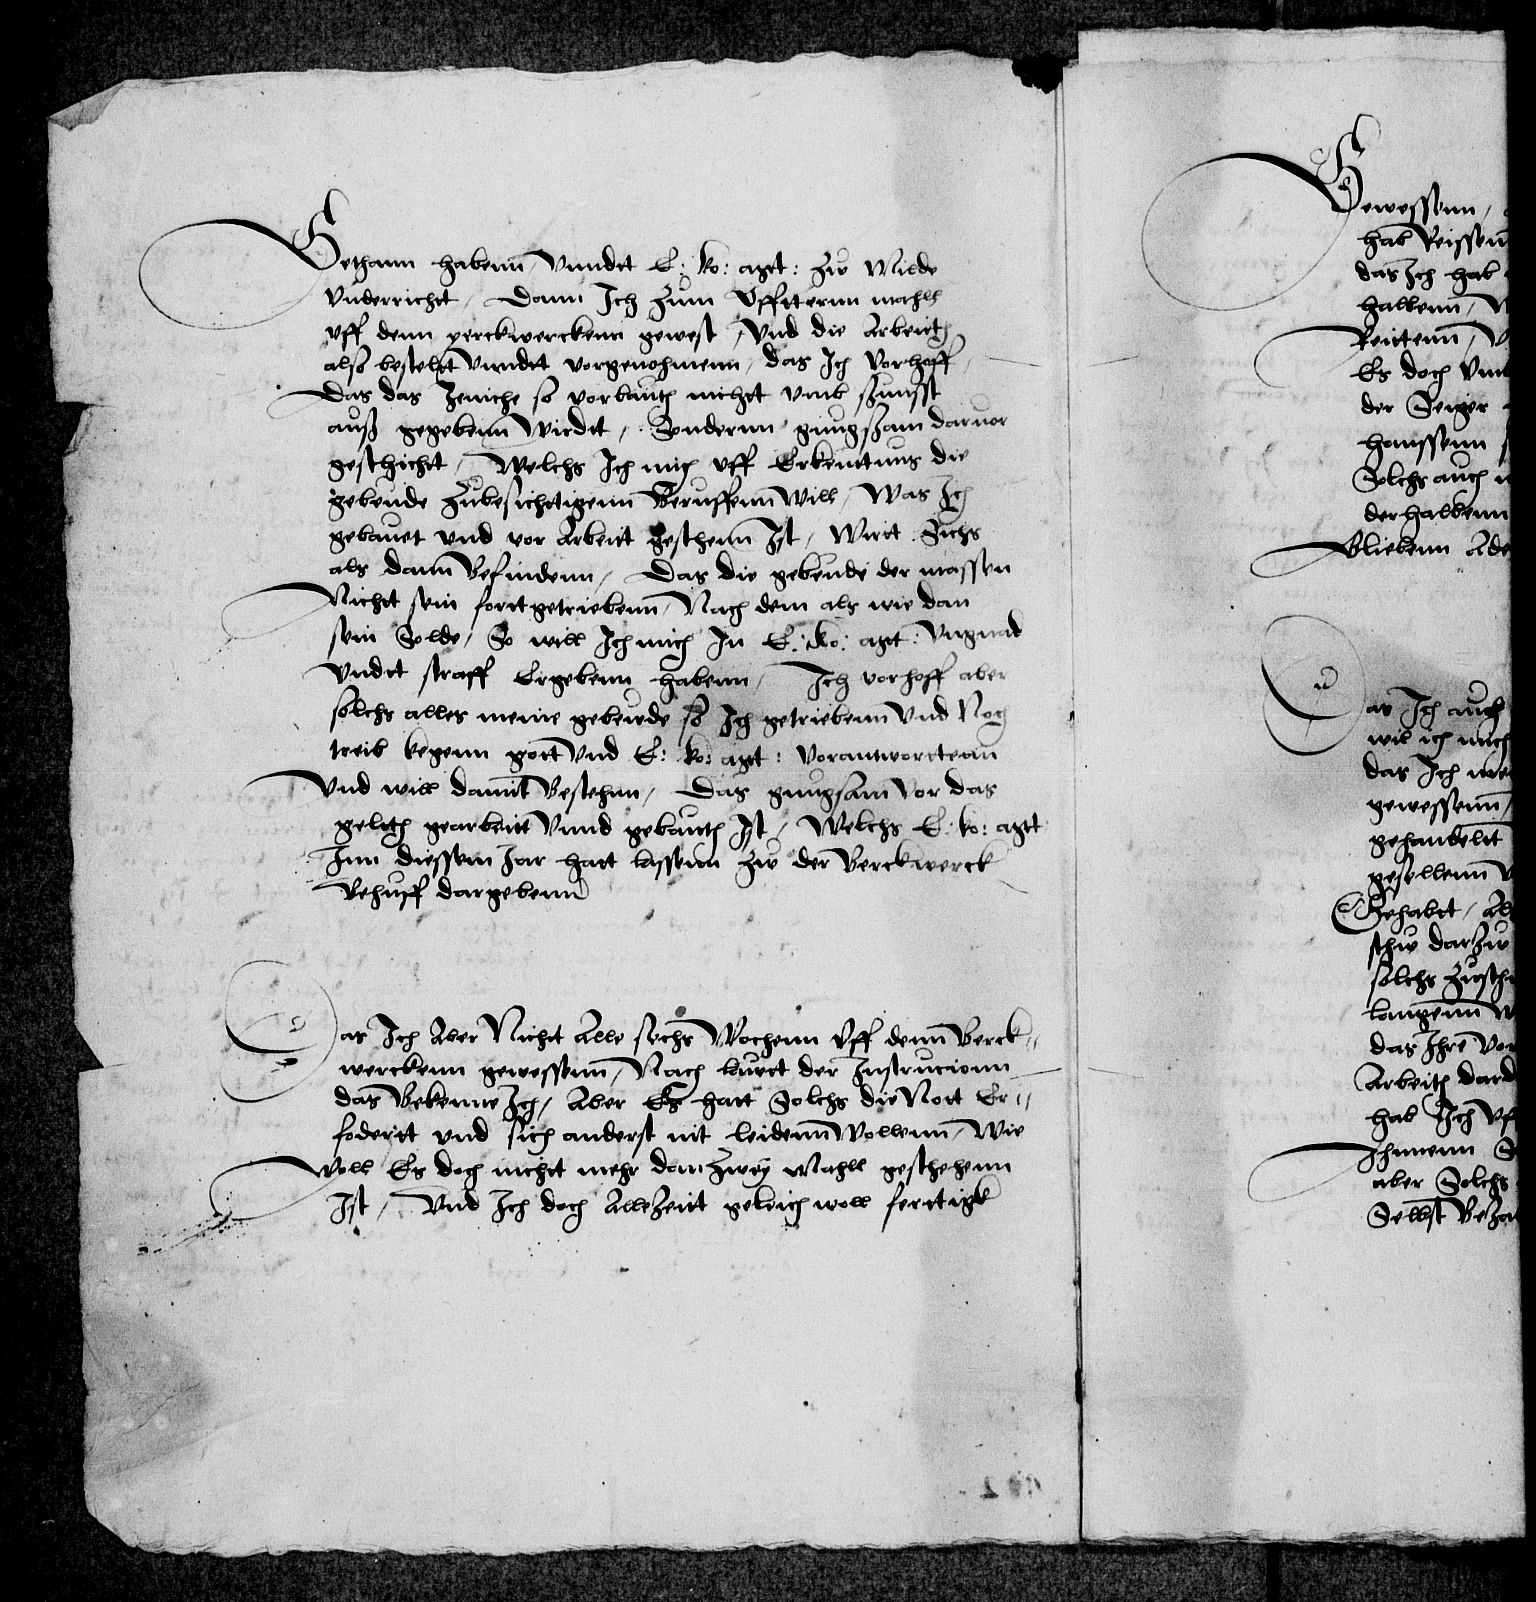 Gethann habenn, Vnndt E: ko: mgt: zw Milde
Vnderricht, Dann Ich zum Vfftternn mahll
vff denn perckwerckenn gewest, Vnd die Arbeith
also bestelt Vnndt vorgenohmenn, das Ich Vorhoff,
Das das Jeniche so vorbauth nicht vmb sunsst
auß gegebenn Wirdt, Sondernn gnugsam daruor
geschicht, Welchs Ich mich vff Erkenttnus die
gebeude Zubesichtigenn Beruffenn Will, Was Ich
gebauet vnd vor Arbeit geschenn Ist, Wirt Sichs
als dann Befindenn, Das die gebeude der massen
Nicht sein forttgetriebenn, Nach dem als wie dan
sein Solde, So will Ich mich In E: ko: mgt: Vngnad
Vndt straff Ergebenn habenn, Ich vorhoff aber
solchs alles meine gebeude so Ich getriebenn Vnd Noch
treib kegenn gott Vnd E: ko: mgt: Vorantworttenn
Vnd will damit Bestehnn, Das gnugsam vor das
geltth gearbeitt Vnnd gebauth Ist, Welchs E: ko: mgtt
Inn diessem Jar hatt lassenn zw der Berckwerck
Behuff dargebenn
Das Ich Aber Nicht Alle sechs Wochenn Vff denn Berck-
werckenn gewessenn, Nach lautt der Instrucionn
das Bekenne Ich, Aber Es hatt Solchs die Nott Er-
fodertt vnd sich anderst nit leidenn Wollenn, Wie
Woll Es doch nicht mehr dan Zwey Mahll geschehenn
Ist, Vnd Ich doch AlleZeitt geleich woll ferttigk
Gewessenn,
hab Reissenn
das Ich hab
hallbenn,
Reittenn,
Es doch Vmb
der Seiger
haussenn
Solchs auch
derhalbenn
Bliebenn Ade
Das Ich auch
wil ich mich
das Ich
gewessenn,
gehandeltt
gesellenn
Gehabt,
schw darzw
solchs
langenn
das Ihre Vor
Arbeith dar
hab Ich Vff
Ihnenn
aber Solchs
Selbst Beza